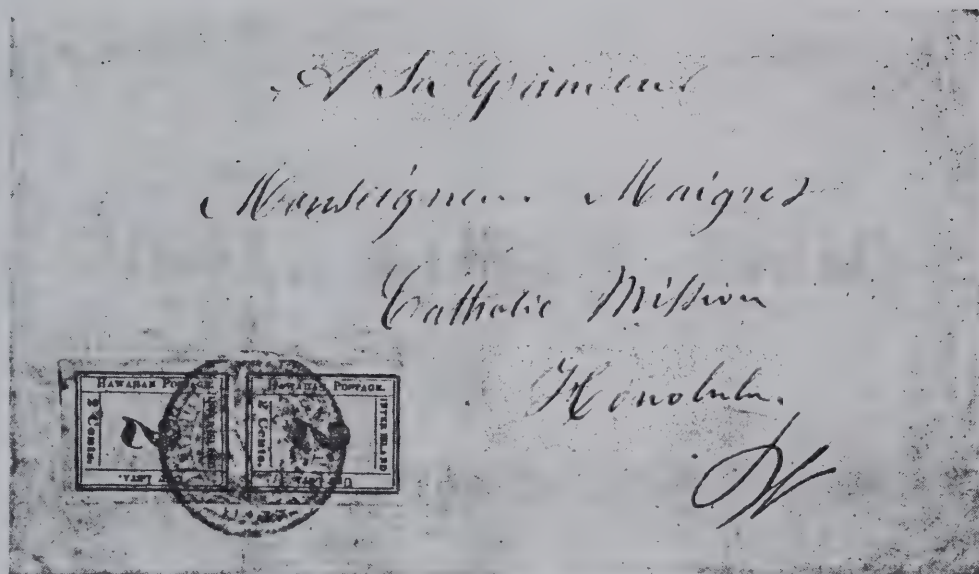 A Sa Grandeur
Monseigneur Maigret
Catholic Mission
Honolulu.
HAWAIIAN POSTAGE.
2 Cents.
2
INTER ISLAND
HAWAIIAN POSTAGE.
2 Cents.
2
INTER ISLAND